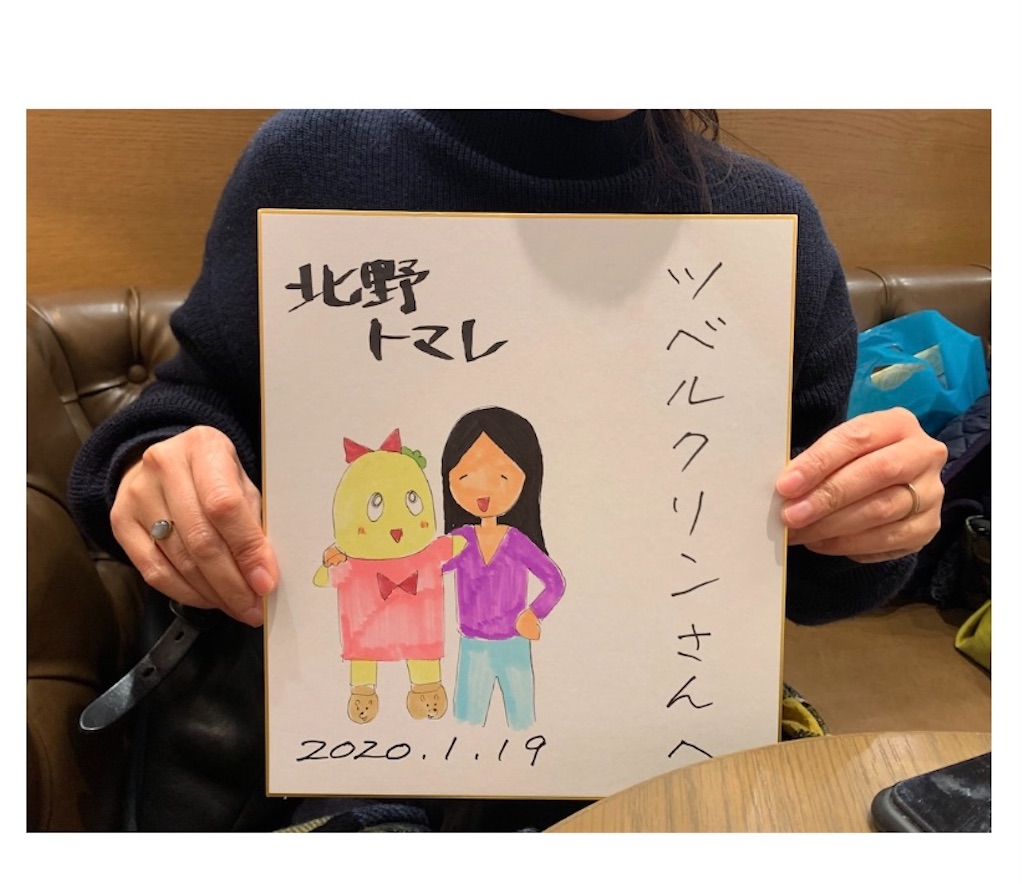 ツベルクリンさんへ
北野
トマレ
2020.1.19